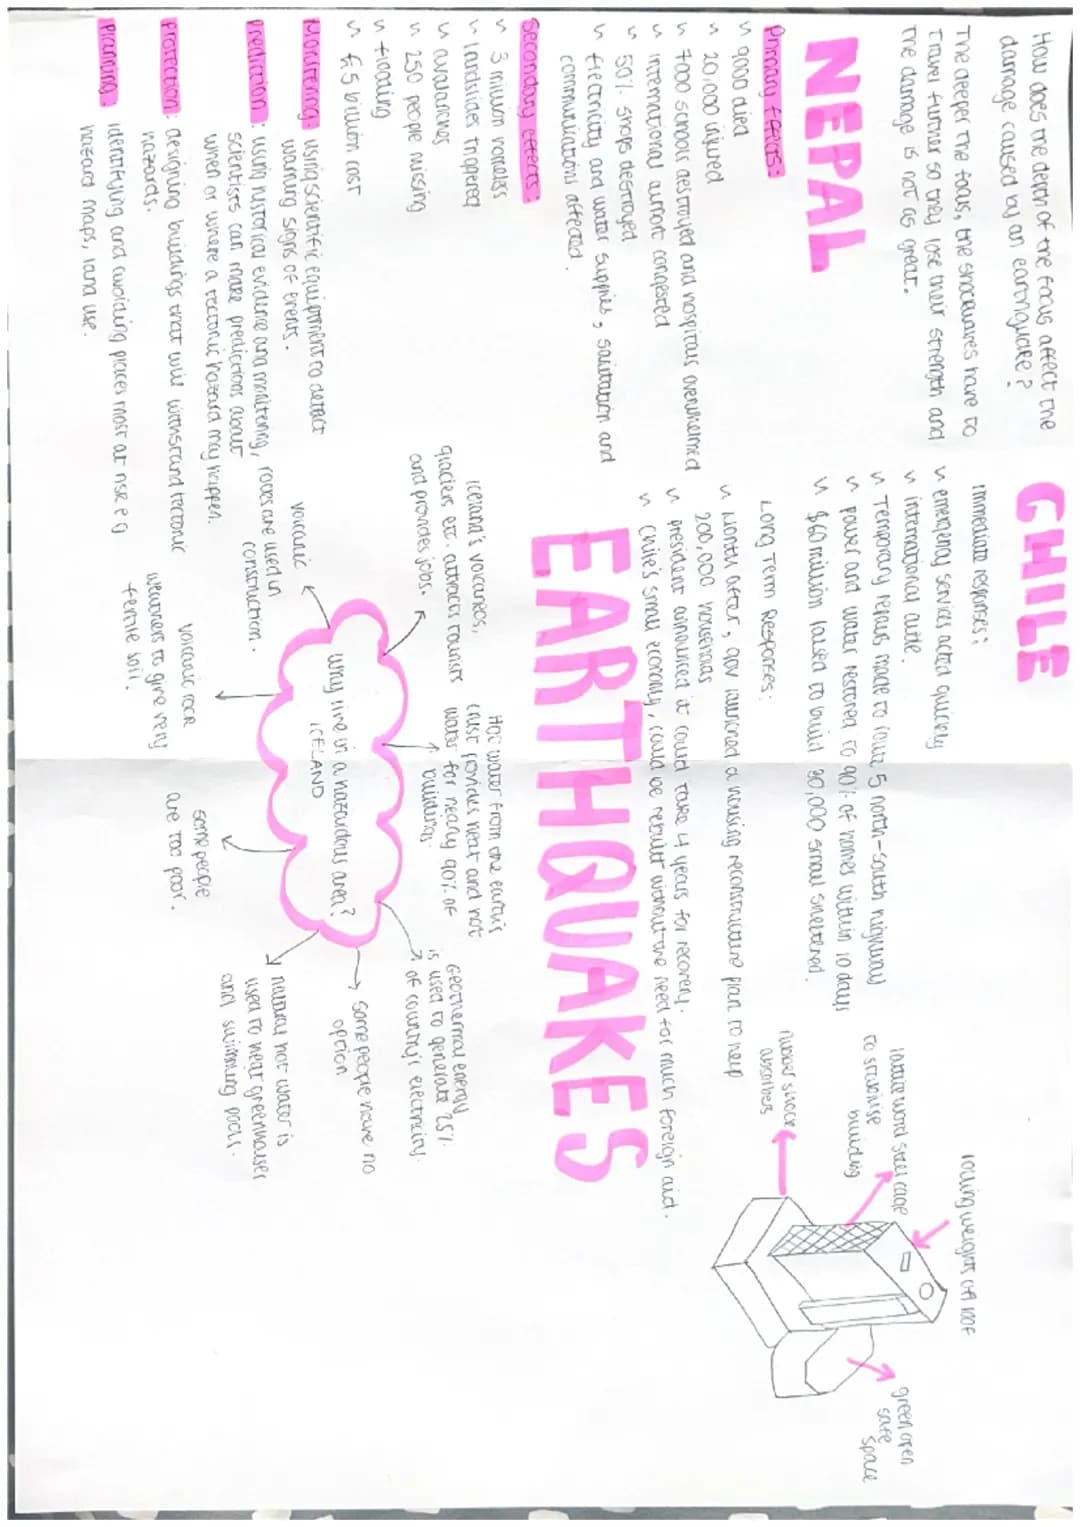 How does the depth of the focus affect the
damage caused by an earthquake?
The deeper the focus, the shockwaves have to
travel further so they lose their strength and
the damage is not as great.
NEPAL
Primary effects:
9000 died
20,000 injured
7000 schools destroyed and hospitals overwhelmed
international airport congested
50% shops destroyed
electricity and water supplies, sanitation and
communications affected.
Secondary effects:
3 million homeless
landslides triggered
avalanches
250 people missing
flooding
£5 billion cost
Monitoring: using scientific equiptment to detect
warning signs of events.
prediction: using historical evidence and monitering,
scientists can make predictions about
when or where a tectonic hazard may happen.
protection: designing buildings that will withstand tectonic
hazards.
planning: identifying and avoiding places most at risk eg
hazard maps, land use.
CHILE
immediate responses:
emergency services acted quickly
international autte.
Temporary repairs made to route 5 north-south highway
power and water restored to 90% of homes within 10 days
$60 million raised to build 30,000 small sheltered.
Long Term Responses:
Month after, gov launched a housing reconstruture plan to help
200,000 households
president announced it could take 4 years for recovery.
Chile's small economy, could be rebuilt without the need for much foreign aid.
rocking weights on roof
lattice word steel cage
to stabilise
building
rubber shock
absorbers
green open
safe
space
EARTHQUAKES
Why live in a hazardous area?
ICELAND
Iceland's volcanoes,
glaciers etc attracts tourists
and provides jobs.
Hot water from the earth's
crust provides heat and hot
water for nearly 90% of
buildings.
Geothermal energy
is used to generate 25%
of country's electricity.
some people have no
option
natural hot water is
used to heat greenhouses
and swimming pools.
some people
are too poor.
volcanic rock
weathers to give very
fertile soil.
volcanic
rocks are used in
construction.